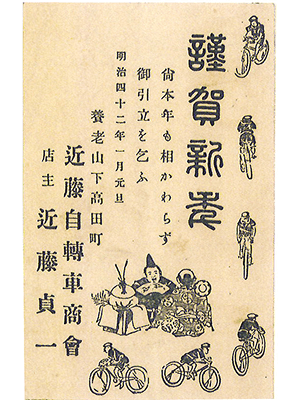 謹賀新年
尙本年も相かわらず
御引立を乞ふ
明治四十二年一月元旦
養老山下高田町
近藤自轉車商會
店主 近藤貞一